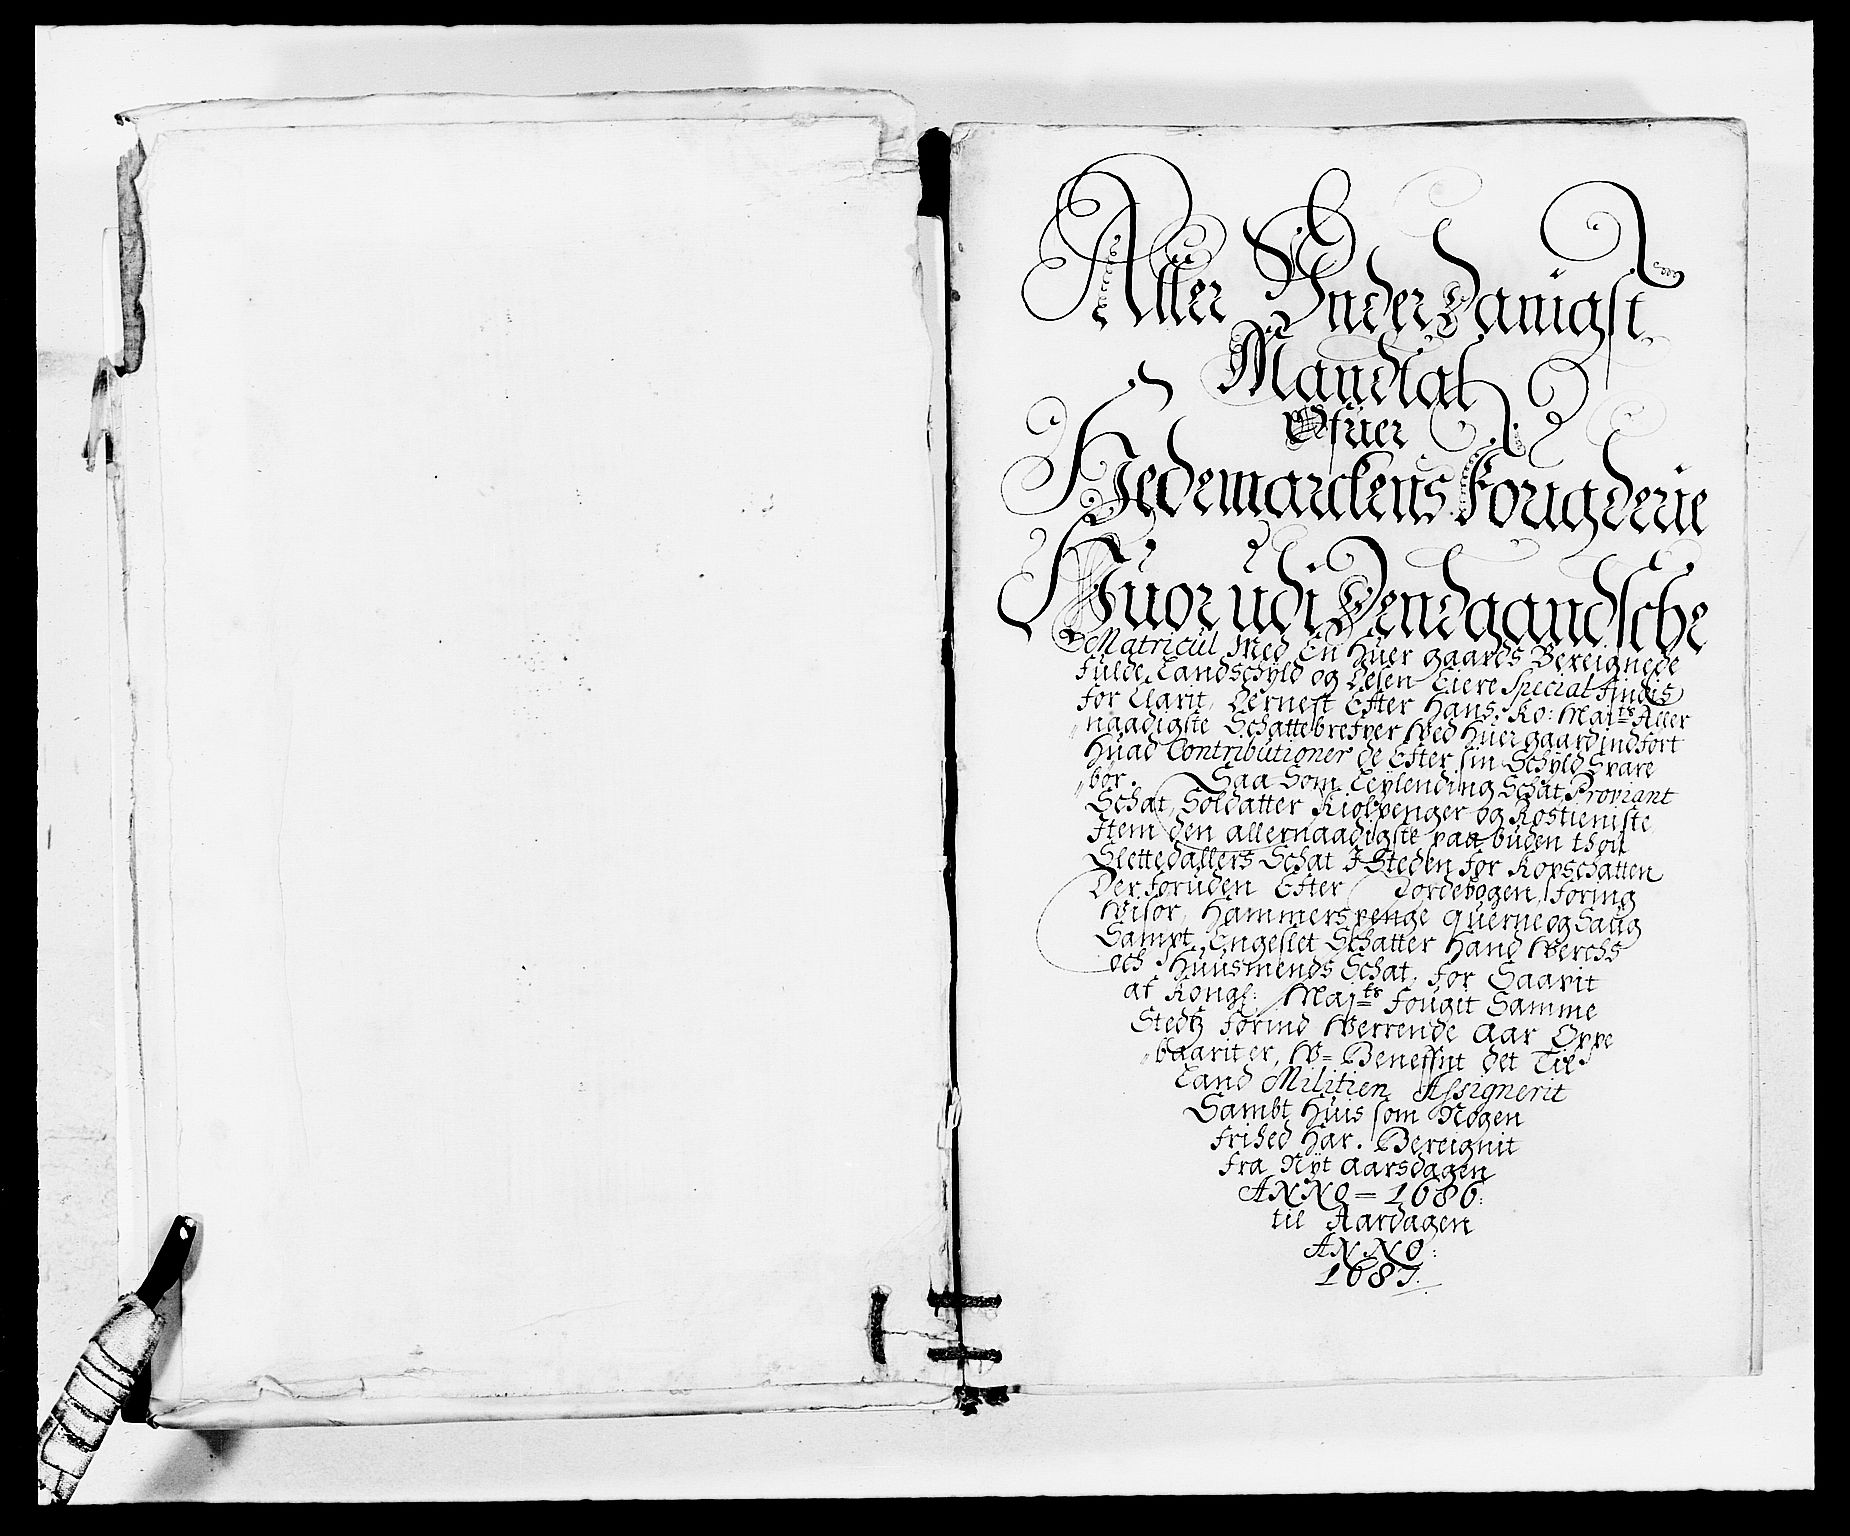 Aller Vnderdanigst
Mandtal
Ofuer
Hedemarckens Fougderie
Huor udi Dend gandsche
Matricul Med En Huer gaards Bereignede
fulde Landschyld og desen Eiere Special findis
for Clarit, Dernest Efter Hans Ko: Maj:ts Aller
naadigste Schattebrefuer Wed Huer gaard indfört
Huad Contributioner de Efter sin Schyld Suare
bör. Saa Som Leylending Schat Proviant
Schat, Soldatter Kiolpenger og Kostieniste
Item den allernaadigste paa buden thou
Slettedallers Schat I Steden for Kopschatten
Der foruden Efter Jordebogen, foring
Wisör, Hammerspenge Querne og Saug
Sampt Engeslet Schatter Hand Werchs
och Huusmends Schat, for Saavit
af Kongl: Maj:ts fougit Samme
Stedtz forind Werrende Aar Oppe
baarit er, W= Benefnt det Til
Land Militien Assignerit
Sambt Huis som Nogen
frihed Har. Bereignit
fra Nyt Aarsdagen
ANNO = 1686:
til Aardagen
ANNO:
1687.